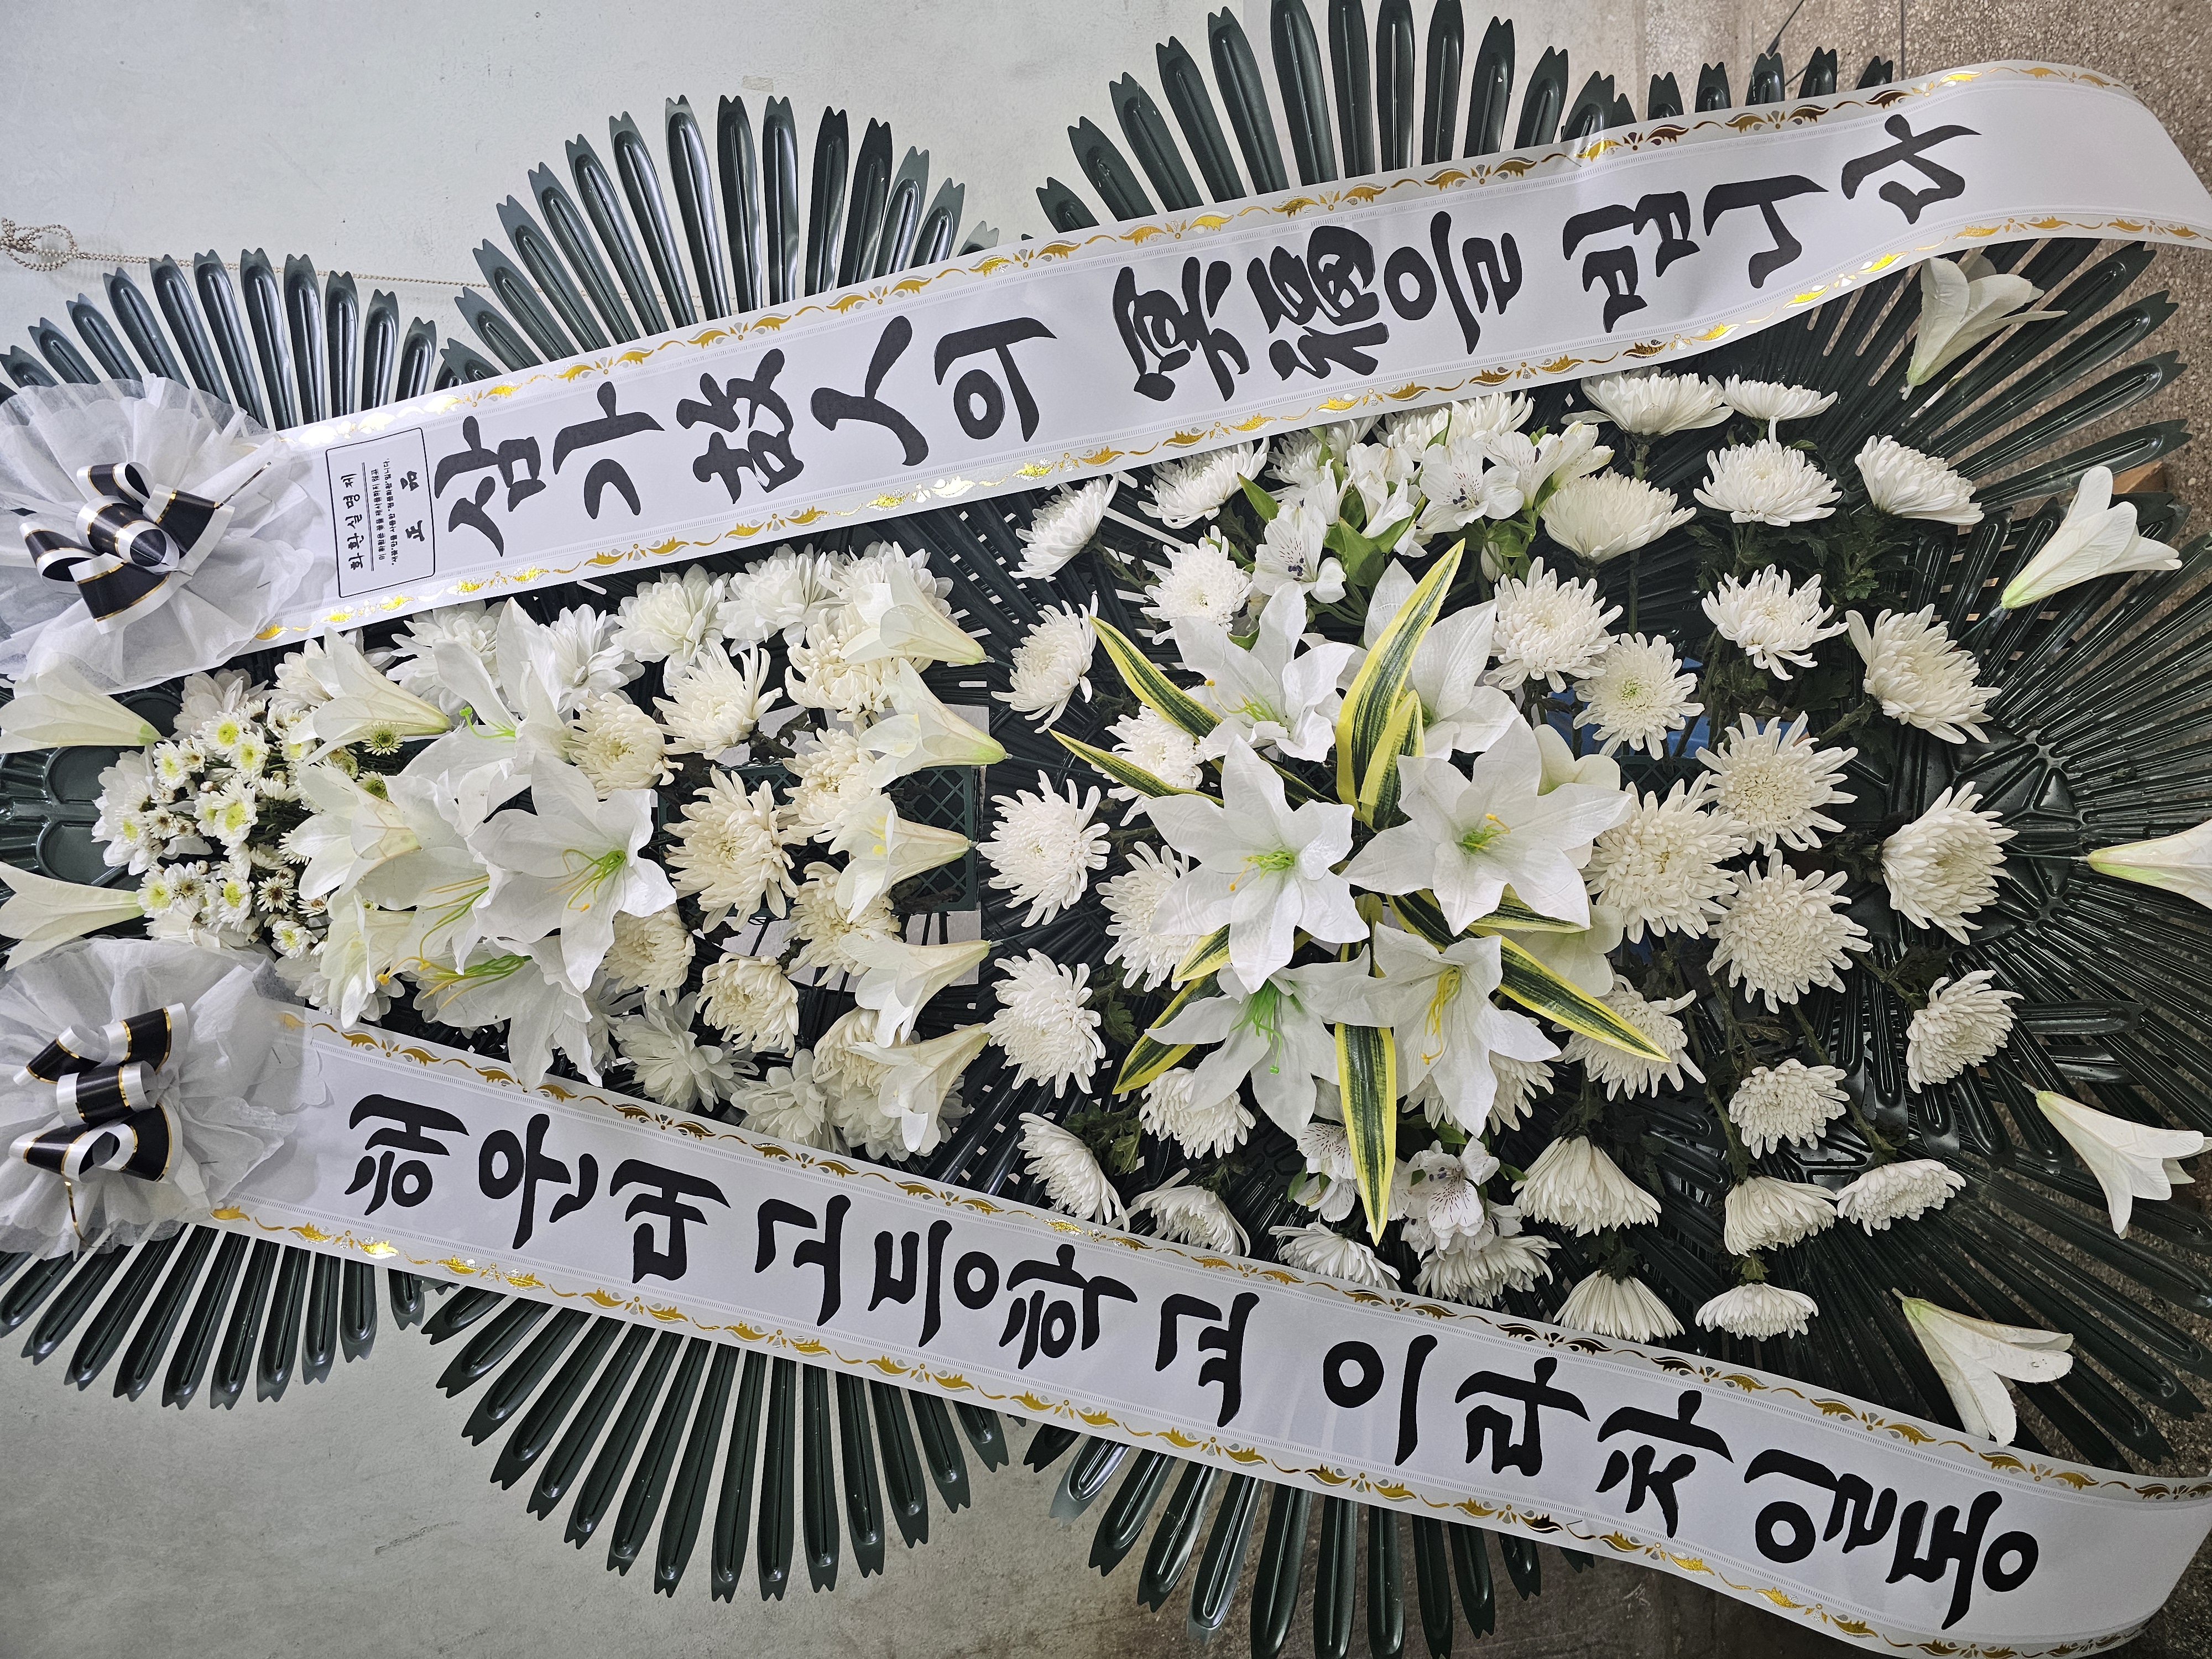 화환실명제
正品
삼가 故人의 冥福을 빕니다
해운대고등학교 이라자일동